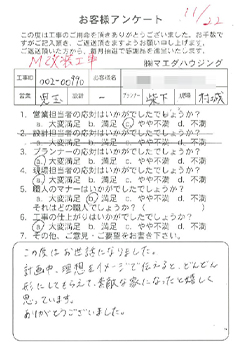 11/22
お客様アンケート
この度は工事のご用命を頂きありがとうございました。お手数で
すがご記入頂き、ご返送頂きますようお願い申し上げます。
ご返送頂いた方から、毎月抽選で
㈱マエダハウジング
工事NO
お客様名
営業 児玉 設計 － プランナー 柴下 現場 村城
1. 営業担当者の応対はいかがでしたでしょうか？
a. 大変満足 b. 満足 c. やや不満 d. 不満
2. 設計担当者の応対はいかがでしたでしょうか？
a. 大変満足 b. 満足 c. やや不満 d. 不満
3. プランナーの応対はいかがでしたでしょうか？
a. 大変満足 b. 満足 c. やや不満 d. 不満
4. 現場担当者の応対はいかがでしたでしょうか？
a. 大変満足 b. 満足 c. やや不満 d. 不満
5. 職人のマナーはいかがでしたでしょうか？
a. 大変満足 b. 満足 c. やや不満 d. 不満
それはどの職人でしょうか？（ ）
6. 工事の仕上がりはいかがでしたでしょうか？
a. 大変満足 b. 満足 c. やや不満 d. 不満
7. その他、ご意見・ご要望をお書き下さい。
この度はお世話になりました。
計画中、理想をイメージで伝えると、どんどん
形にしてもらえて、素敵な家になったと嬉しく
思っています。
ありがとうございました。